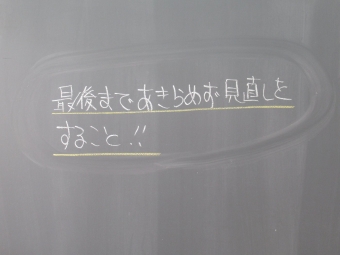 最後まであきらめず見直しを
すること!!